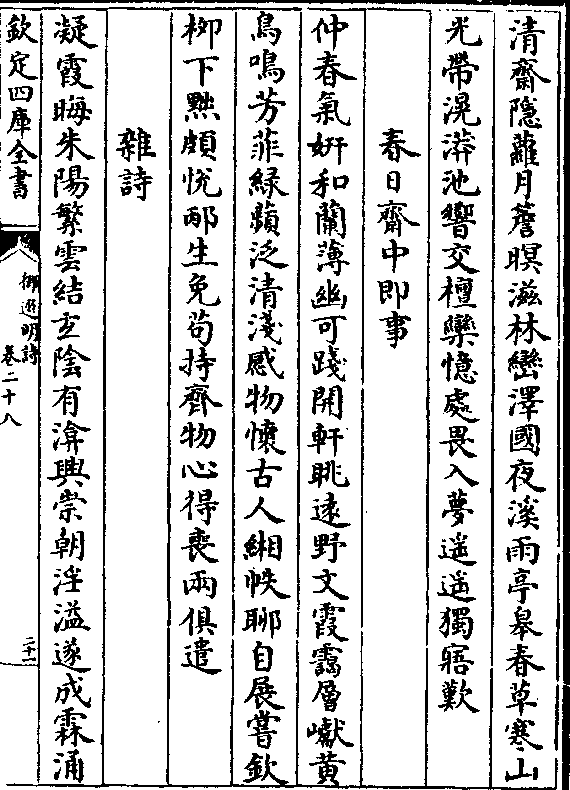 清齋隱蘿月簷暝滋林巒澤國夜溪雨亭皋春草寒山
光帶滉漭池響交檀欒憶處畏入夢遥遥獨寤歎
春日齋中即事
仲春氣妍和蘭薄幽可踐開軒眺遠野文霞靄層巘黄
鳥鳴芳菲緑蘋泛清淺感物懷古人緗帙聊自展嘗欽
柳下黜頗悦邴生免苟持齊物心得喪兩俱遣
雜詩
凝霞晦朱陽繁雲結玄陰有渰興崇朝淫溢遂成霖涌
欽定四庫全書
御選明詩
卷二十八
二十一